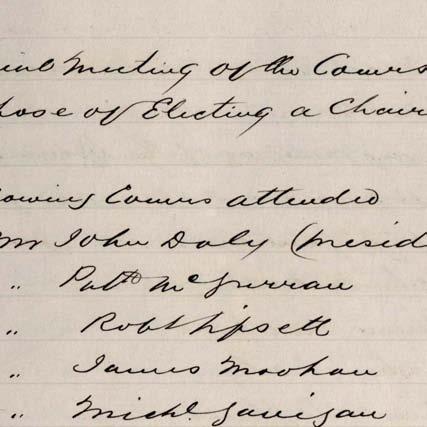 cial Meeting of the Comrs
pose of Electing a Chair
lowing Comrs attended
Mr John Daly (presid
" Patk McGurran
" Robt Lipsett
" James Moohan
" Michl Gavigan